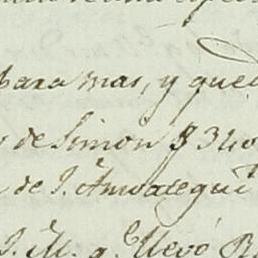 para mas, y qued
de Simon $ 340
de J. Amoategui
J. M. q.e llevó B